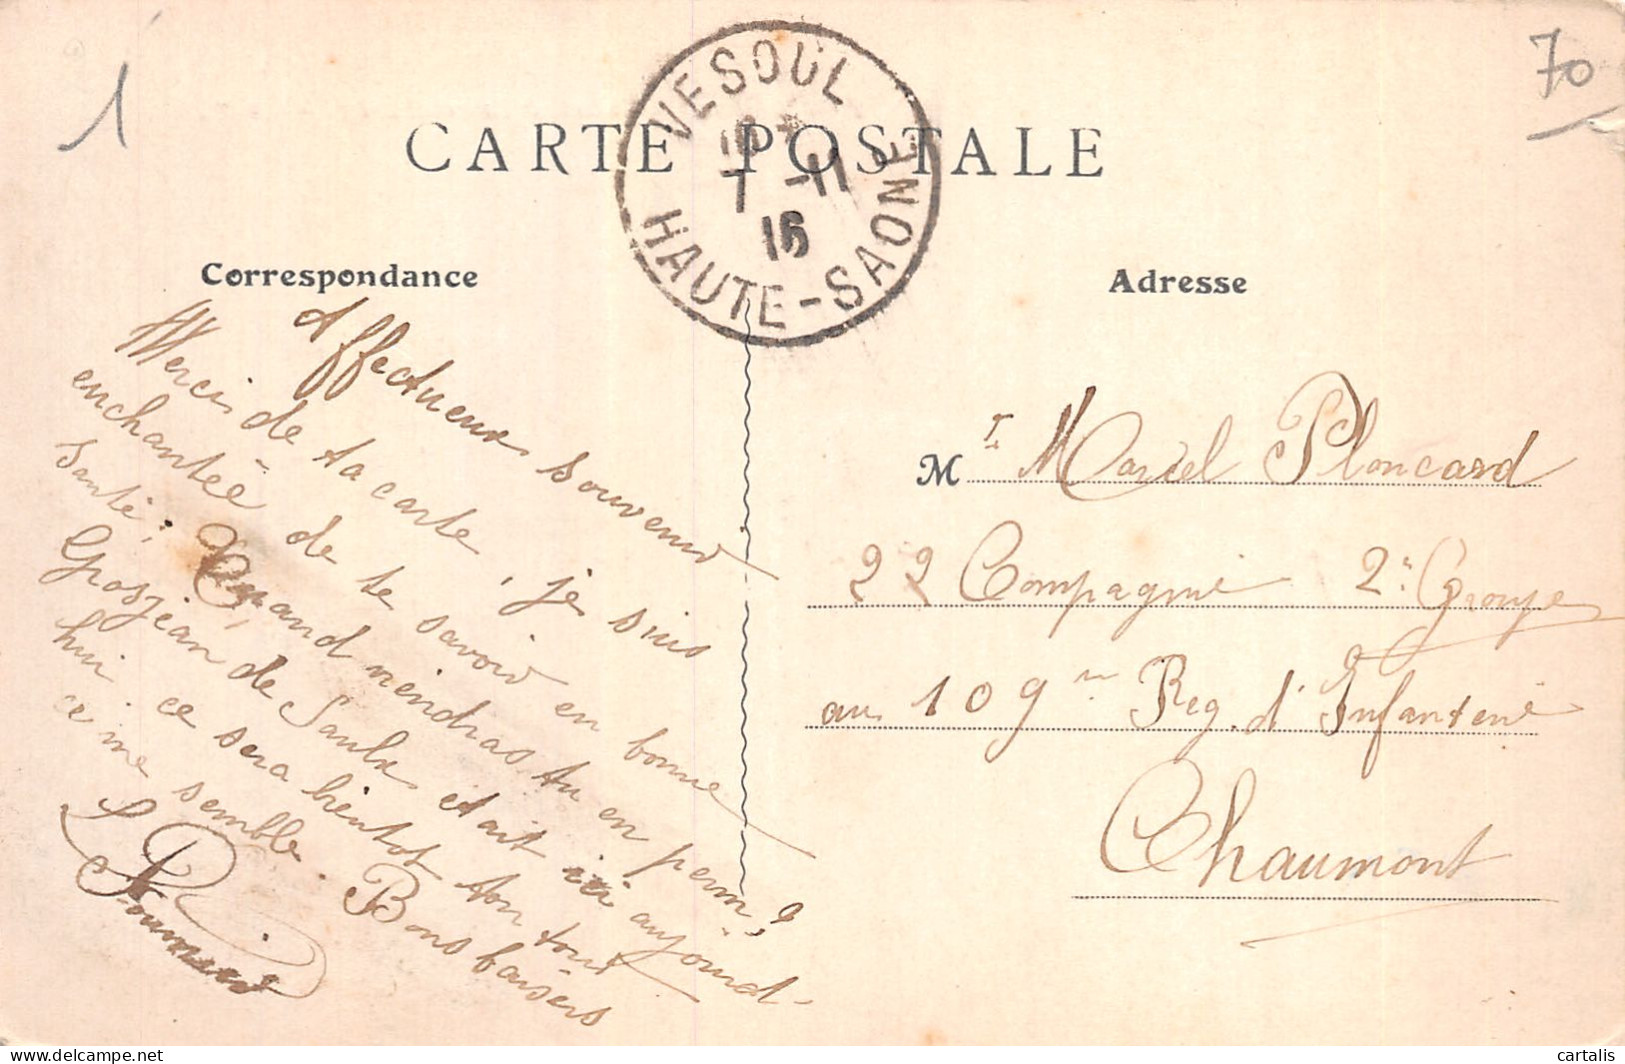 1
70
CARTE POSTALE
VESOUL
7 -11
16
HAUTE-SAONE
Correspondance
Adresse
Affectueux souvenir
Merci de ta carte, je suis
enchantée de te savoir en bonne
santé; Quand viendras tu en perm?
Grosjean de Saulx était ici aujourd-
hui ce sera bientôt ton tour
ce me semble. Bons baisers
Mr Marcel Plancard
22 Compagnie 2e Groupe
au 109me Reg. d'Infanterie
Chaumont
cartalis
delcampe.net